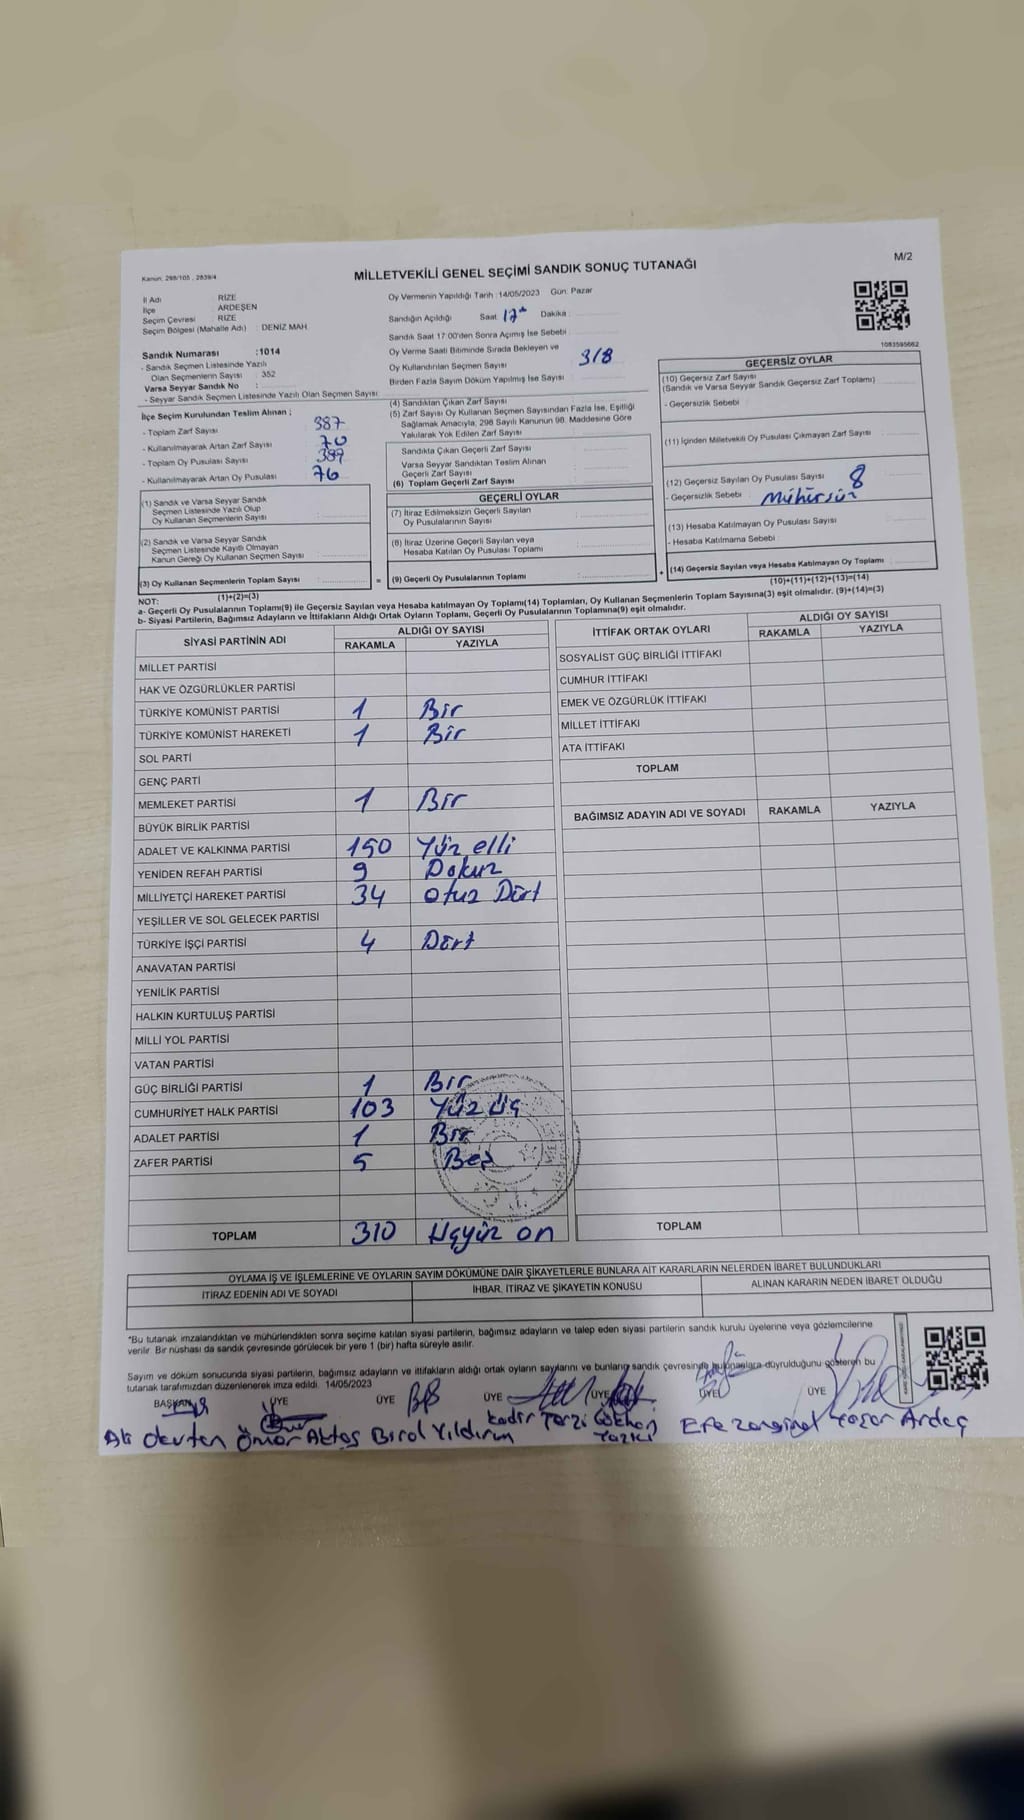 Kanun: 298/105 , 2839/4
MİLLETVEKİLİ GENEL SEÇİMİ SANDIK SONUÇ TUTANAĞI
M/2
İl Adı : RİZE
İlçe : ARDEŞEN
Seçim Çevresi : RİZE
Seçim Bölgesi (Mahalle Adı) : DENİZ MAH
Sandık Numarası :1014
- Sandık Seçmen Listesinde Yazılı
Olan Seçmenlerin Sayısı : 352
Varsa Seyyar Sandık No :
- Seyyar Sandık Seçmen Listesinde Yazılı Olan Seçmen Sayısı
Oy Vermenin Yapıldığı Tarih :14/05/2023 Gün: Pazar
Sandığın Açıldığı Saat 17 Dakika :
Sandık Saat 17:00'den Sonra Açımış İse Sebebi :
Oy Verme Saati Bitiminde Sırada Bekleyen ve
Oy Kullandırılan Seçmen Sayısı 318
Birden Fazla Sayım Döküm Yapılmış İse Sayısı
1083595662
İlçe Seçim Kurulundan Teslim Alınan ;
- Toplam Zarf Sayısı 387
- Kullanılmayarak Artan Zarf Sayısı 70
- Toplam Oy Pusulası Sayısı 387
- Kullanılmayarak Artan Oy Pusulası 76
(1) Sandık ve Varsa Seyyar Sandık
Seçmen Listesinde Yazılı Olup
Oy Kullanan Seçmenlerin Sayısı
(2) Sandık ve Varsa Seyyar Sandık
Seçmen Listesinde Kayıtlı Olmayan
Kanun Gereği Oy Kullanan Seçmen Sayısı
(3) Oy Kullanan Seçmenlerin Toplam Sayısı
(1)+(2)=(3)
(4) Sandıktan Çıkan Zarf Sayısı
(5) Zarf Sayısı Oy Kullanan Seçmen Sayısından Fazla İse, Eşitliği
Sağlamak Amacıyla, 298 Sayılı Kanunun 98. Maddesine Göre
Yakılarak Yok Edilen Zarf Sayısı
Sandıkta Çıkan Geçerli Zarf Sayısı
Varsa Seyyar Sandıktan Teslim Alınan
Geçerli Zarf Sayısı
(6) Toplam Geçerli Zarf Sayısı
GEÇERLİ OYLAR
(7) İtiraz Edilmeksizin Geçerli Sayılan
Oy Pusulalarının Sayısı
(8) İtiraz Üzerine Geçerli Sayılan veya
Hesaba Katılan Oy Pusulası Toplamı
= (9) Geçerli Oy Pusulalarının Toplamı
GEÇERSİZ OYLAR
(10) Geçersiz Zarf Sayısı
(Sandık ve Varsa Seyyar Sandık Geçersiz Zarf Toplamı)
- Geçersizlik Sebebi
(11) İçinden Milletvekili Oy Pusulası Çıkmayan Zarf Sayısı
(12) Geçersiz Sayılan Oy Pusulası Sayısı 8
- Geçersizlik Sebebi : Mühürsüz
(13) Hesaba Katılmayan Oy Pusulası Sayısı
- Hesaba Katılmama Sebebi :
+ (14) Geçersiz Sayılan veya Hesaba Katılmayan Oy Toplamı
(10)+(11)+(12)+(13)=(14)
NOT:
a- Geçerli Oy Pusulalarının Toplamı(9) ile Geçersiz Sayılan veya Hesaba katılmayan Oy Toplamı(14) Toplamları, Oy Kullanan Seçmenlerin Toplam Sayısına(3) eşit olmalıdır. (9)+(14)=(3)
b- Siyasi Partilerin, Bağımsız Adayların ve İttifakların Aldığı Ortak Oyların Toplamı, Geçerli Oy Pusulalarının Toplamına(9) eşit olmalıdır.
SİYASİ PARTİNİN ADI ALDIĞI OY SAYISI
RAKAMLA YAZIYLA
MİLLET PARTİSİ
HAK VE ÖZGÜRLÜKLER PARTİSİ
TÜRKİYE KOMÜNİST PARTİSİ 1 Bir
TÜRKİYE KOMÜNİST HAREKETİ 1 Bir
SOL PARTİ
GENÇ PARTİ
MEMLEKET PARTİSİ 1 Bir
BÜYÜK BİRLİK PARTİSİ
ADALET VE KALKINMA PARTİSİ 150 Yüz elli
YENİDEN REFAH PARTİSİ 9 Dokuz
MİLLİYETÇİ HAREKET PARTİSİ 34 Otuz Dört
YEŞİLLER VE SOL GELECEK PARTİSİ
TÜRKİYE İŞÇİ PARTİSİ 4 Dört
ANAVATAN PARTİSİ
YENİLİK PARTİSİ
HALKIN KURTULUŞ PARTİSİ
MİLLİ YOL PARTİSİ
VATAN PARTİSİ
GÜÇ BİRLİĞİ PARTİSİ 1 Bir
CUMHURİYET HALK PARTİSİ 103 Yüz üç
ADALET PARTİSİ 1 Bir
ZAFER PARTİSİ 5 Beş
TOPLAM 310 Üçyüz on
İTTİFAK ORTAK OYLARI ALDIĞI OY SAYISI
RAKAMLA YAZIYLA
SOSYALİST GÜÇ BİRLİĞİ İTTİFAKI
CUMHUR İTTİFAKI
EMEK VE ÖZGÜRLÜK İTTİFAKI
MİLLET İTTİFAKI
ATA İTTİFAKI
TOPLAM
BAĞIMSIZ ADAYIN ADI VE SOYADI RAKAMLA YAZIYLA
TOPLAM
OYLAMA İŞ VE İŞLEMLERİNE VE OYLARIN SAYIM DÖKÜMÜNE DAİR ŞİKAYETLERLE BUNLARA AİT KARARLARIN NELERDEN İBARET BULUNDUKLARI
İTİRAZ EDENİN ADI VE SOYADI İHBAR, İTİRAZ VE ŞİKAYETİN KONUSU ALINAN KARARIN NEDEN İBARET OLDUĞU
*Bu tutanak imzalandıktan ve mühürlendikten sonra seçime katılan siyasi partilerin, bağımsız adayların ve talep eden siyasi partilerin sandık kurulu üyelerine veya gözlemcilerine
verilir. Bir nüshası da sandık çevresinde görülecek bir yere 1 (bir) hafta süreyle asılır.
Sayım ve döküm sonucunda siyasi partilerin, bağımsız adayların ve ittifakların aldığı ortak oyların sayılarını ve bunların sandık çevresinde bulunanlara duyrulduğunu gösteren bu
tutanak tarafımızdan düzenlenerek imza edildi. 14/05/2023
BAŞKAN ÜYE ÜYE ÜYE ÜYE ÜYE ÜYE
Ali Okutan Ömer Aktaş Birol Yıldırım Kadir Terzi Gökhan Yazıcı Efe Zenginel Yaşar Ardaç